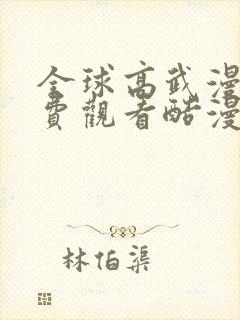 全球高武漫
費觀看酷漫
林伯渠